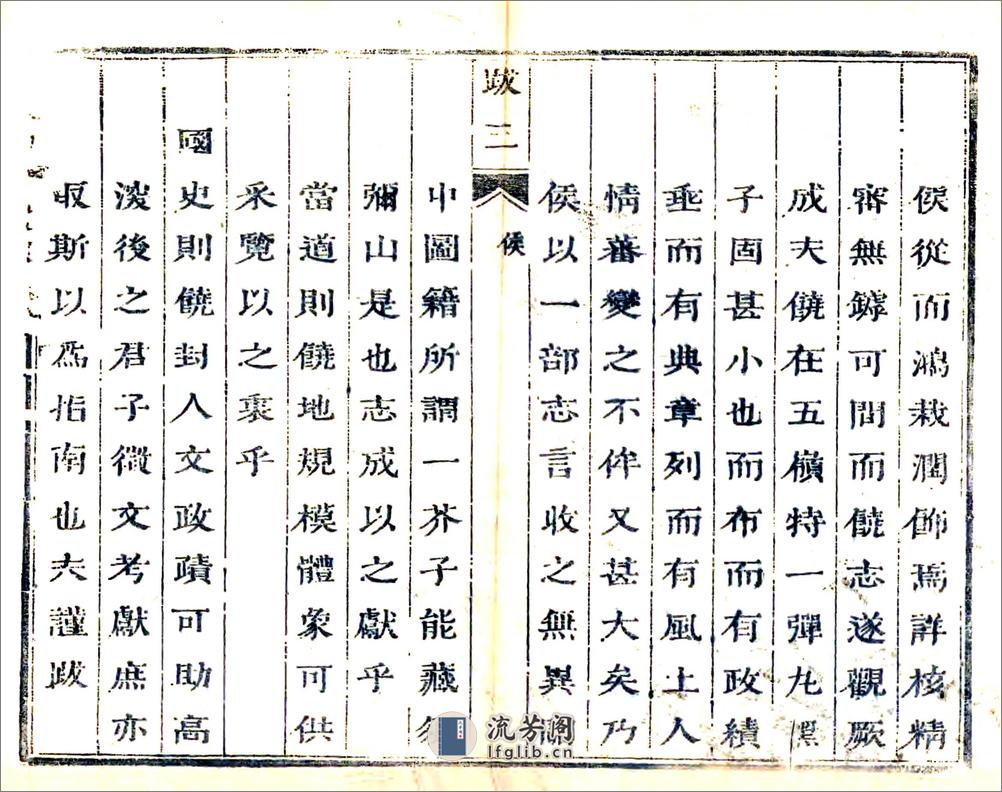 侯從而鴻裁潤飾焉詳核精
審無罅可間而饒志遂觀厥
成夫饒在五嶺特一彈丸黑
子固甚小也而布而有政績
垂而有典章列而有風土人
情蕃變之不侔又甚大矣乃
侯以一部志言收之無異
跋三
侯
中圖籍所謂一芥子能藏須
彌山是也志成以之獻乎
當道則饒地規模體象可供
采覽以之裏乎
國史則饒封人文政蹟可助高
深後之君子徵文考獻庶亦
取斯以爲指南也夫謹跋
流芳阁
lfglib.cn